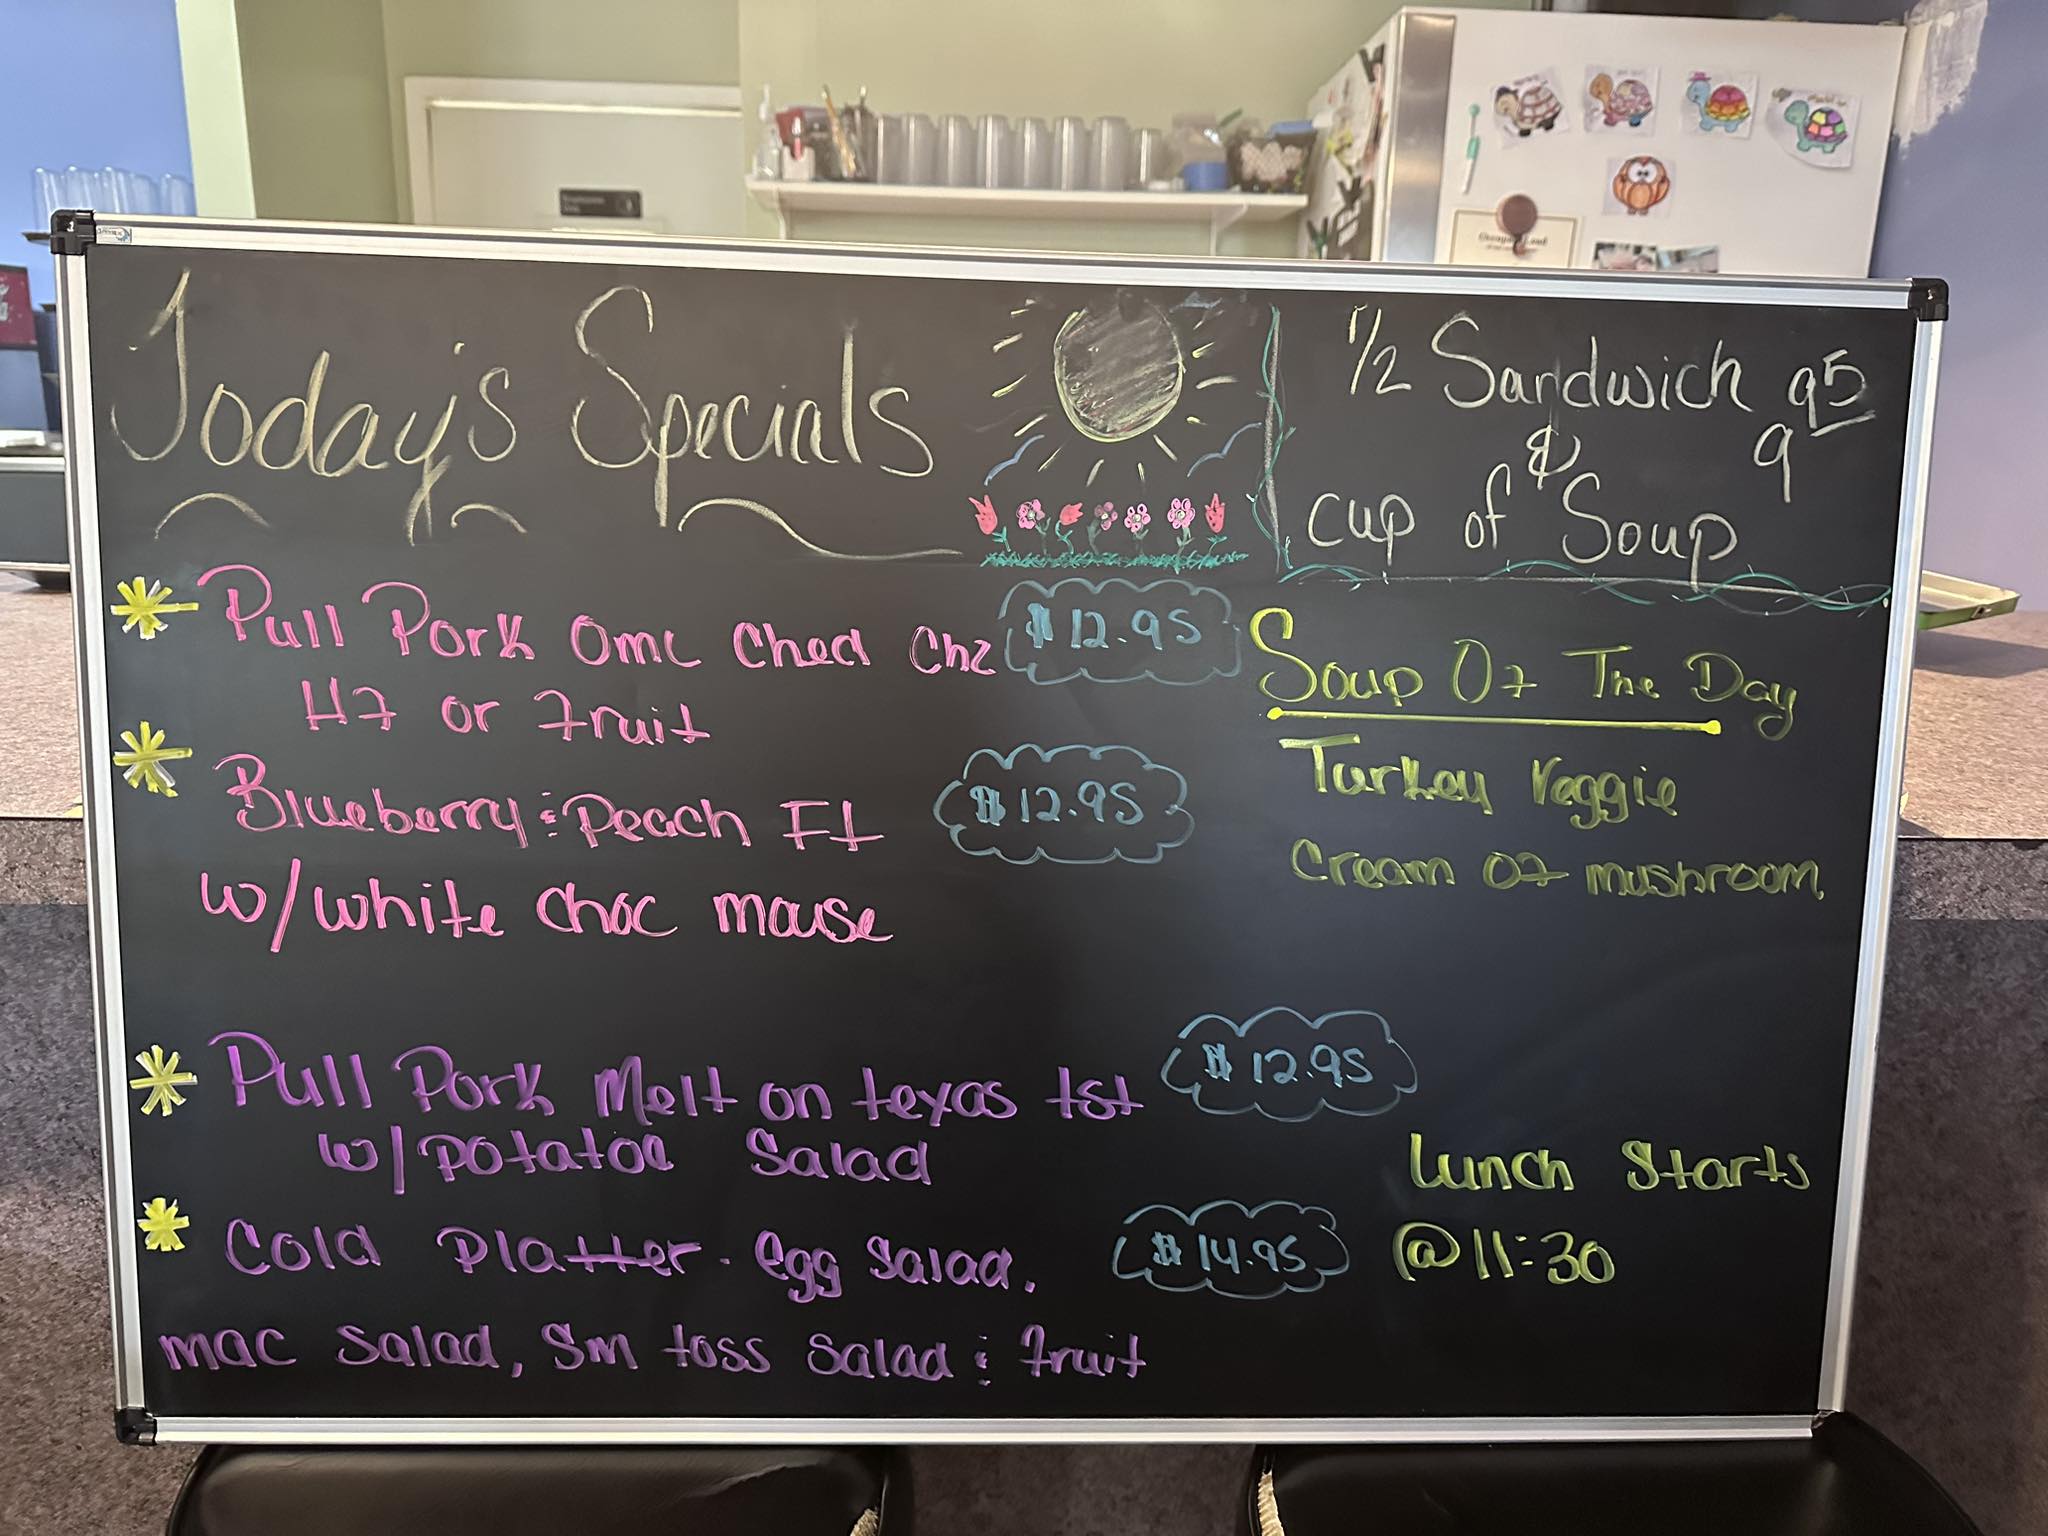 Today's Specials
1/2 Sandwich 9 95
&
cup of Soup
Pull Pork Ome Ched Chz $12.95
HF or Fruit
Blueberry & Peach FT $12.95
w/white choc mouse
Soup Of The Day
Turkey Veggie
Cream of mushroom
Pull Pork Melt on texas tst $12.95
w/potatoe Salad
Cold Platter - egg salad. $14.95
mac salad, Sm toss salad & fruit
Lunch Starts
@ 11:30